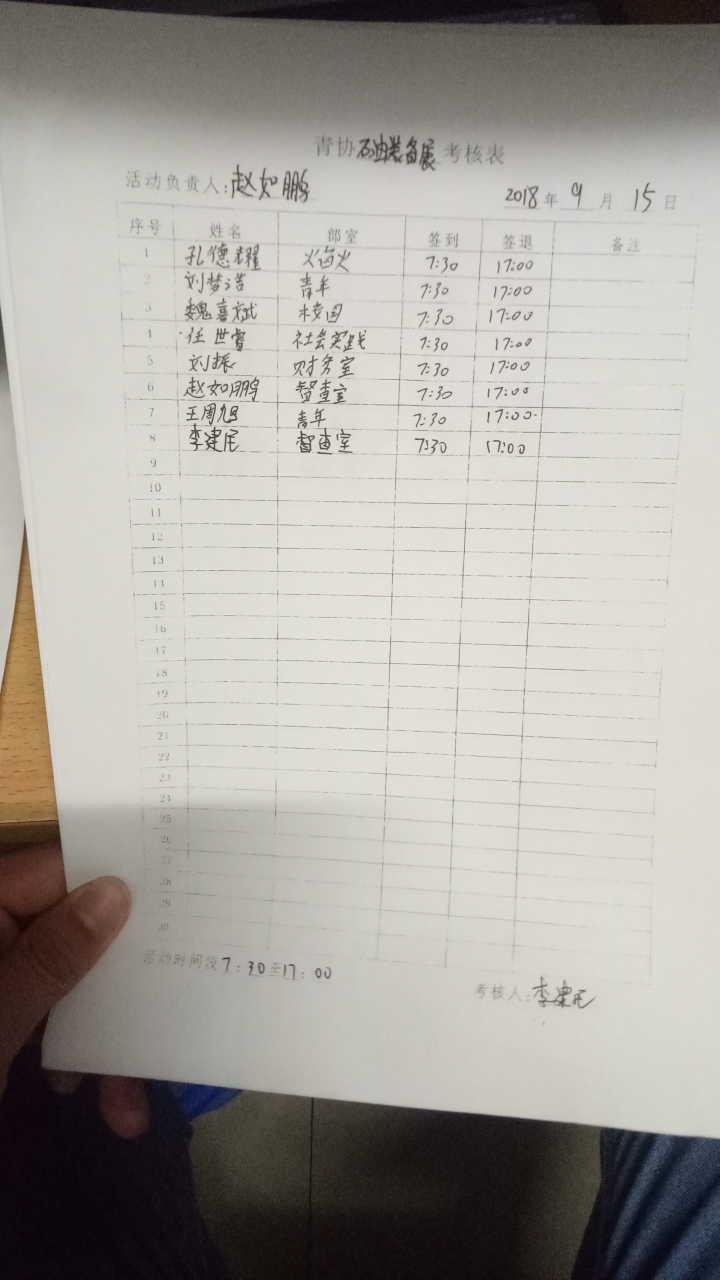 青协石油装备展考核表
活动负责人:赵如鹏 2018年 9 月 15 日
序号 姓名 部室 签到 签退 备注
1 孔德耀 7:30 17:00
2 刘梦浩 青年 7:30 17:00
3 魏嘉斌 校园 7:30 17:00
4 任世 社会实践 7:30 17:00
5 刘振 财务室 7:30 17:00
6 赵如鹏 督查室 7:30 17:00
7 王周旭 青年 7:30 17:00
8 李建民 督查室 7:30 17:00
9
10
11
12
13
14
15
16
17
18
19
20
21
22
23
24
25
26
27
28
29
30
活动时间段7:30至17:00
考核人:李建民